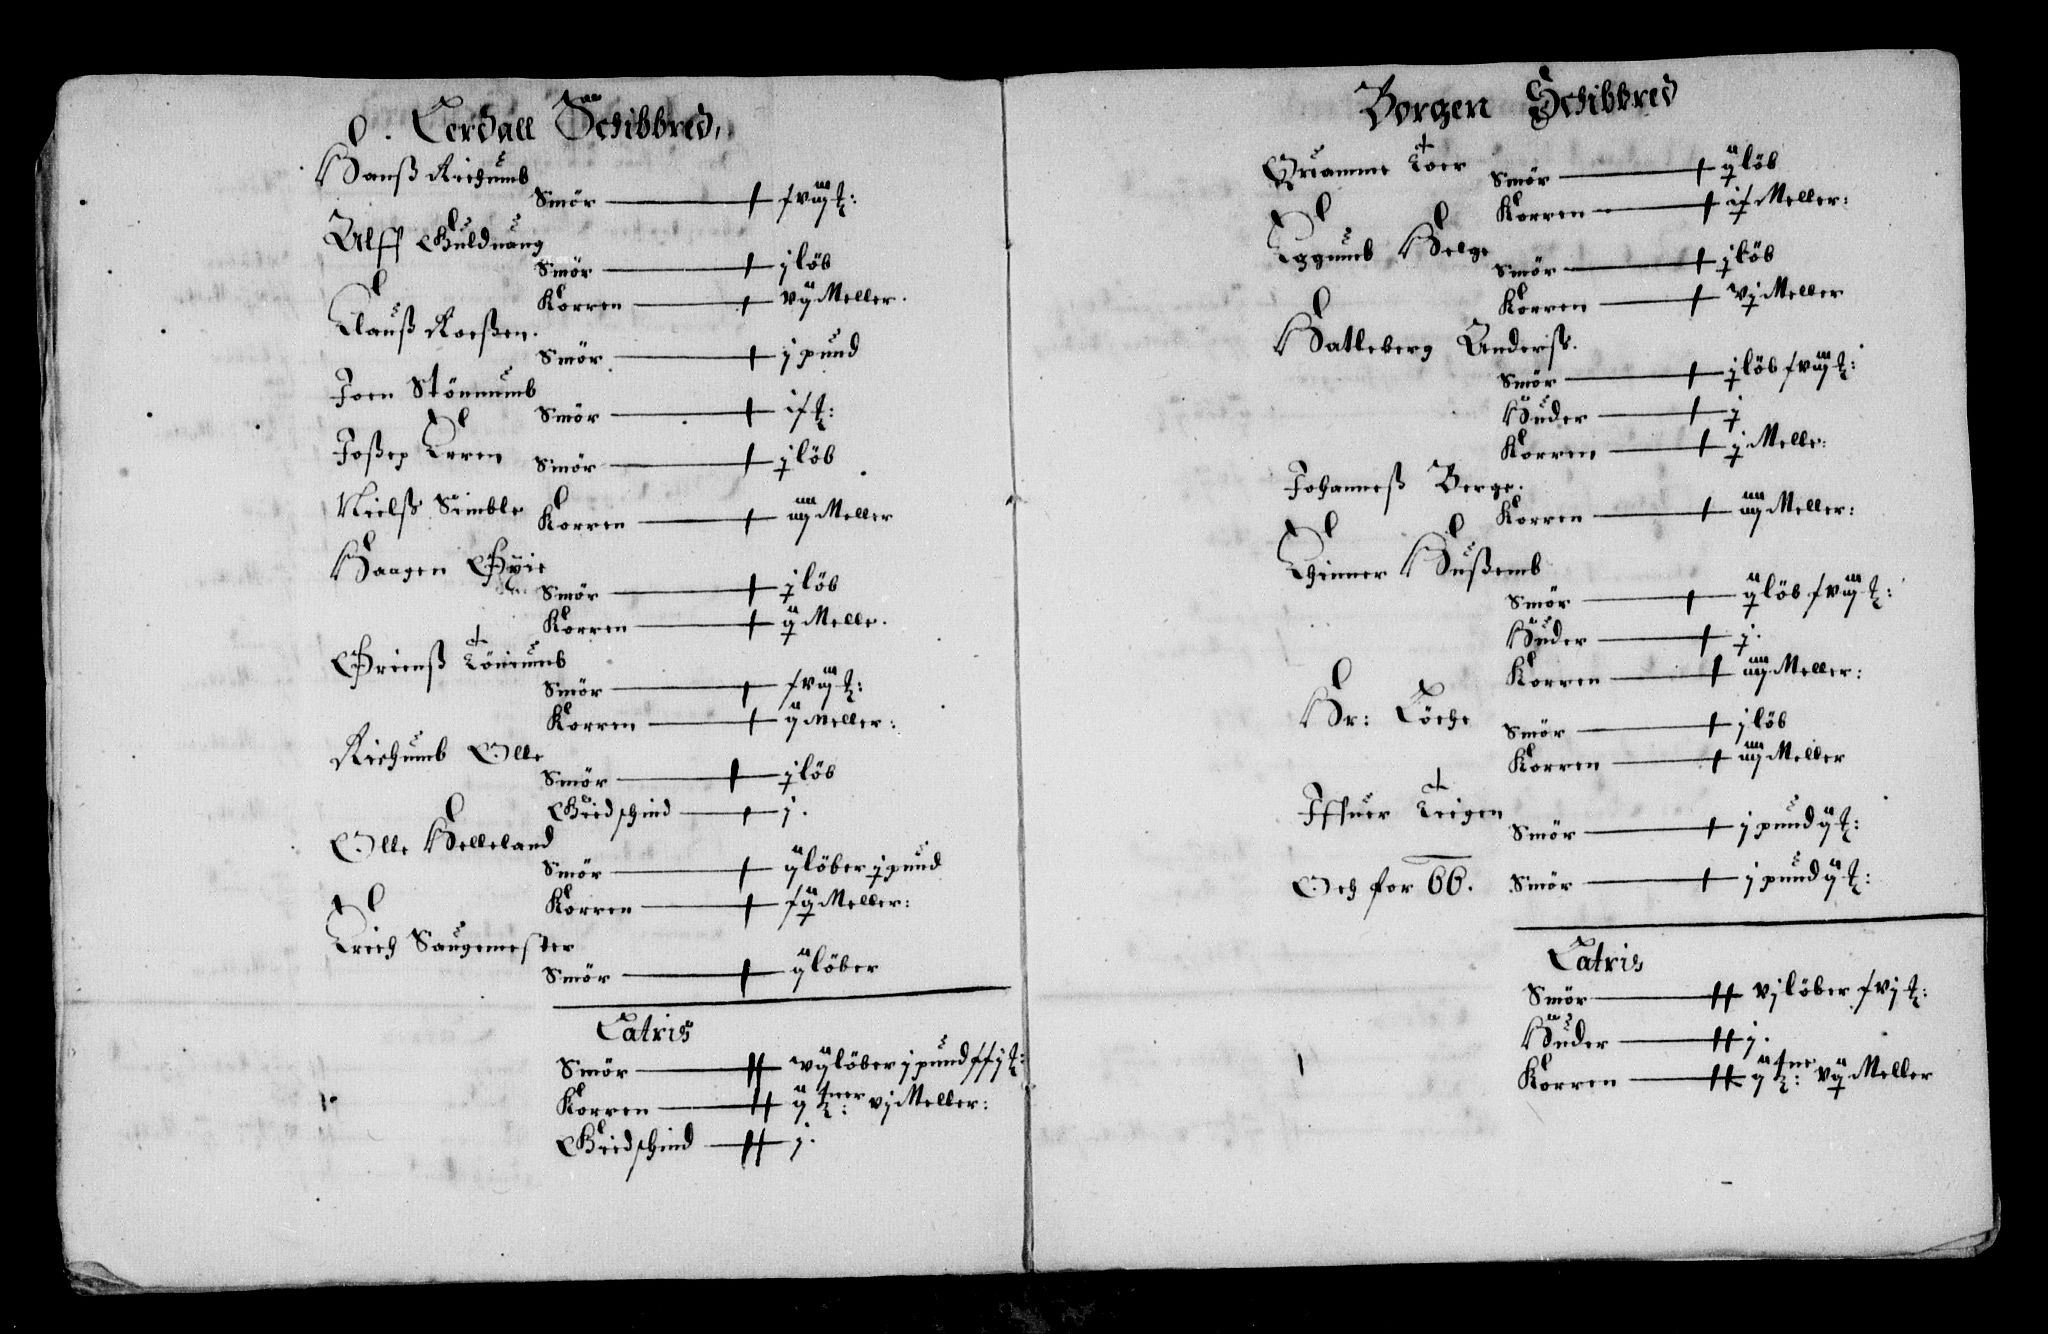 Lerdall Schibbred,
Hanß Richumb
Smör — ƒ viij ℔:
Ulff Guldnang
Smör — j löb
Korren — vij Meller.
Clauß Roeßen.
Smör — j pund
Joen Stönnumb
Smör — iƒ ℔:
Joßep Eeren
Smör — j löb
Nielß Simble
Korren — iiij Meller
Haagen Øyie
Smör — j löb
Korren — ij Melle.
Grienß Tönnumb
Smör — ƒ viij ℔:
Korren — ij Meller:
Richumb Olle
Smör — j löb
Giedschind — j.
Olle Helleland
Smör — ij löber j pund
Korren — ƒ ij Meller:
Erich Saugemester
Smör — ij löber
Latris
Smör — vij löber j pund ƒƒ j ℔:
Korren — ij tner: vj Meller:
Giedschind — j.
Borgen Schibbred
Smör — ij löb
Korren — iƒ Meller:
Eggumb Helge
Smör — j löb
Korren — vj Meller
Hatleberg Anderß.
Smör — j löb ƒ viij ℔:
Huder — j
Korren — j Melle:
Johanneß Berge.
Korren — iiij Meller:
Ehinner Hußemb
Smör — ij löb ƒ viij ℔:
Huder — j.
Korren — iiij Meller:
Hr: Töche
Smör — j löb
Korren — iiij Meller
Iffuer Teigen
Smör — j pund ij ℔:
Och for 66. Smör — j pund ij ℔:
Latris
Smör — vj löber ƒ vj ℔:
Huder — j.
Korren — ij tne: vij Meller